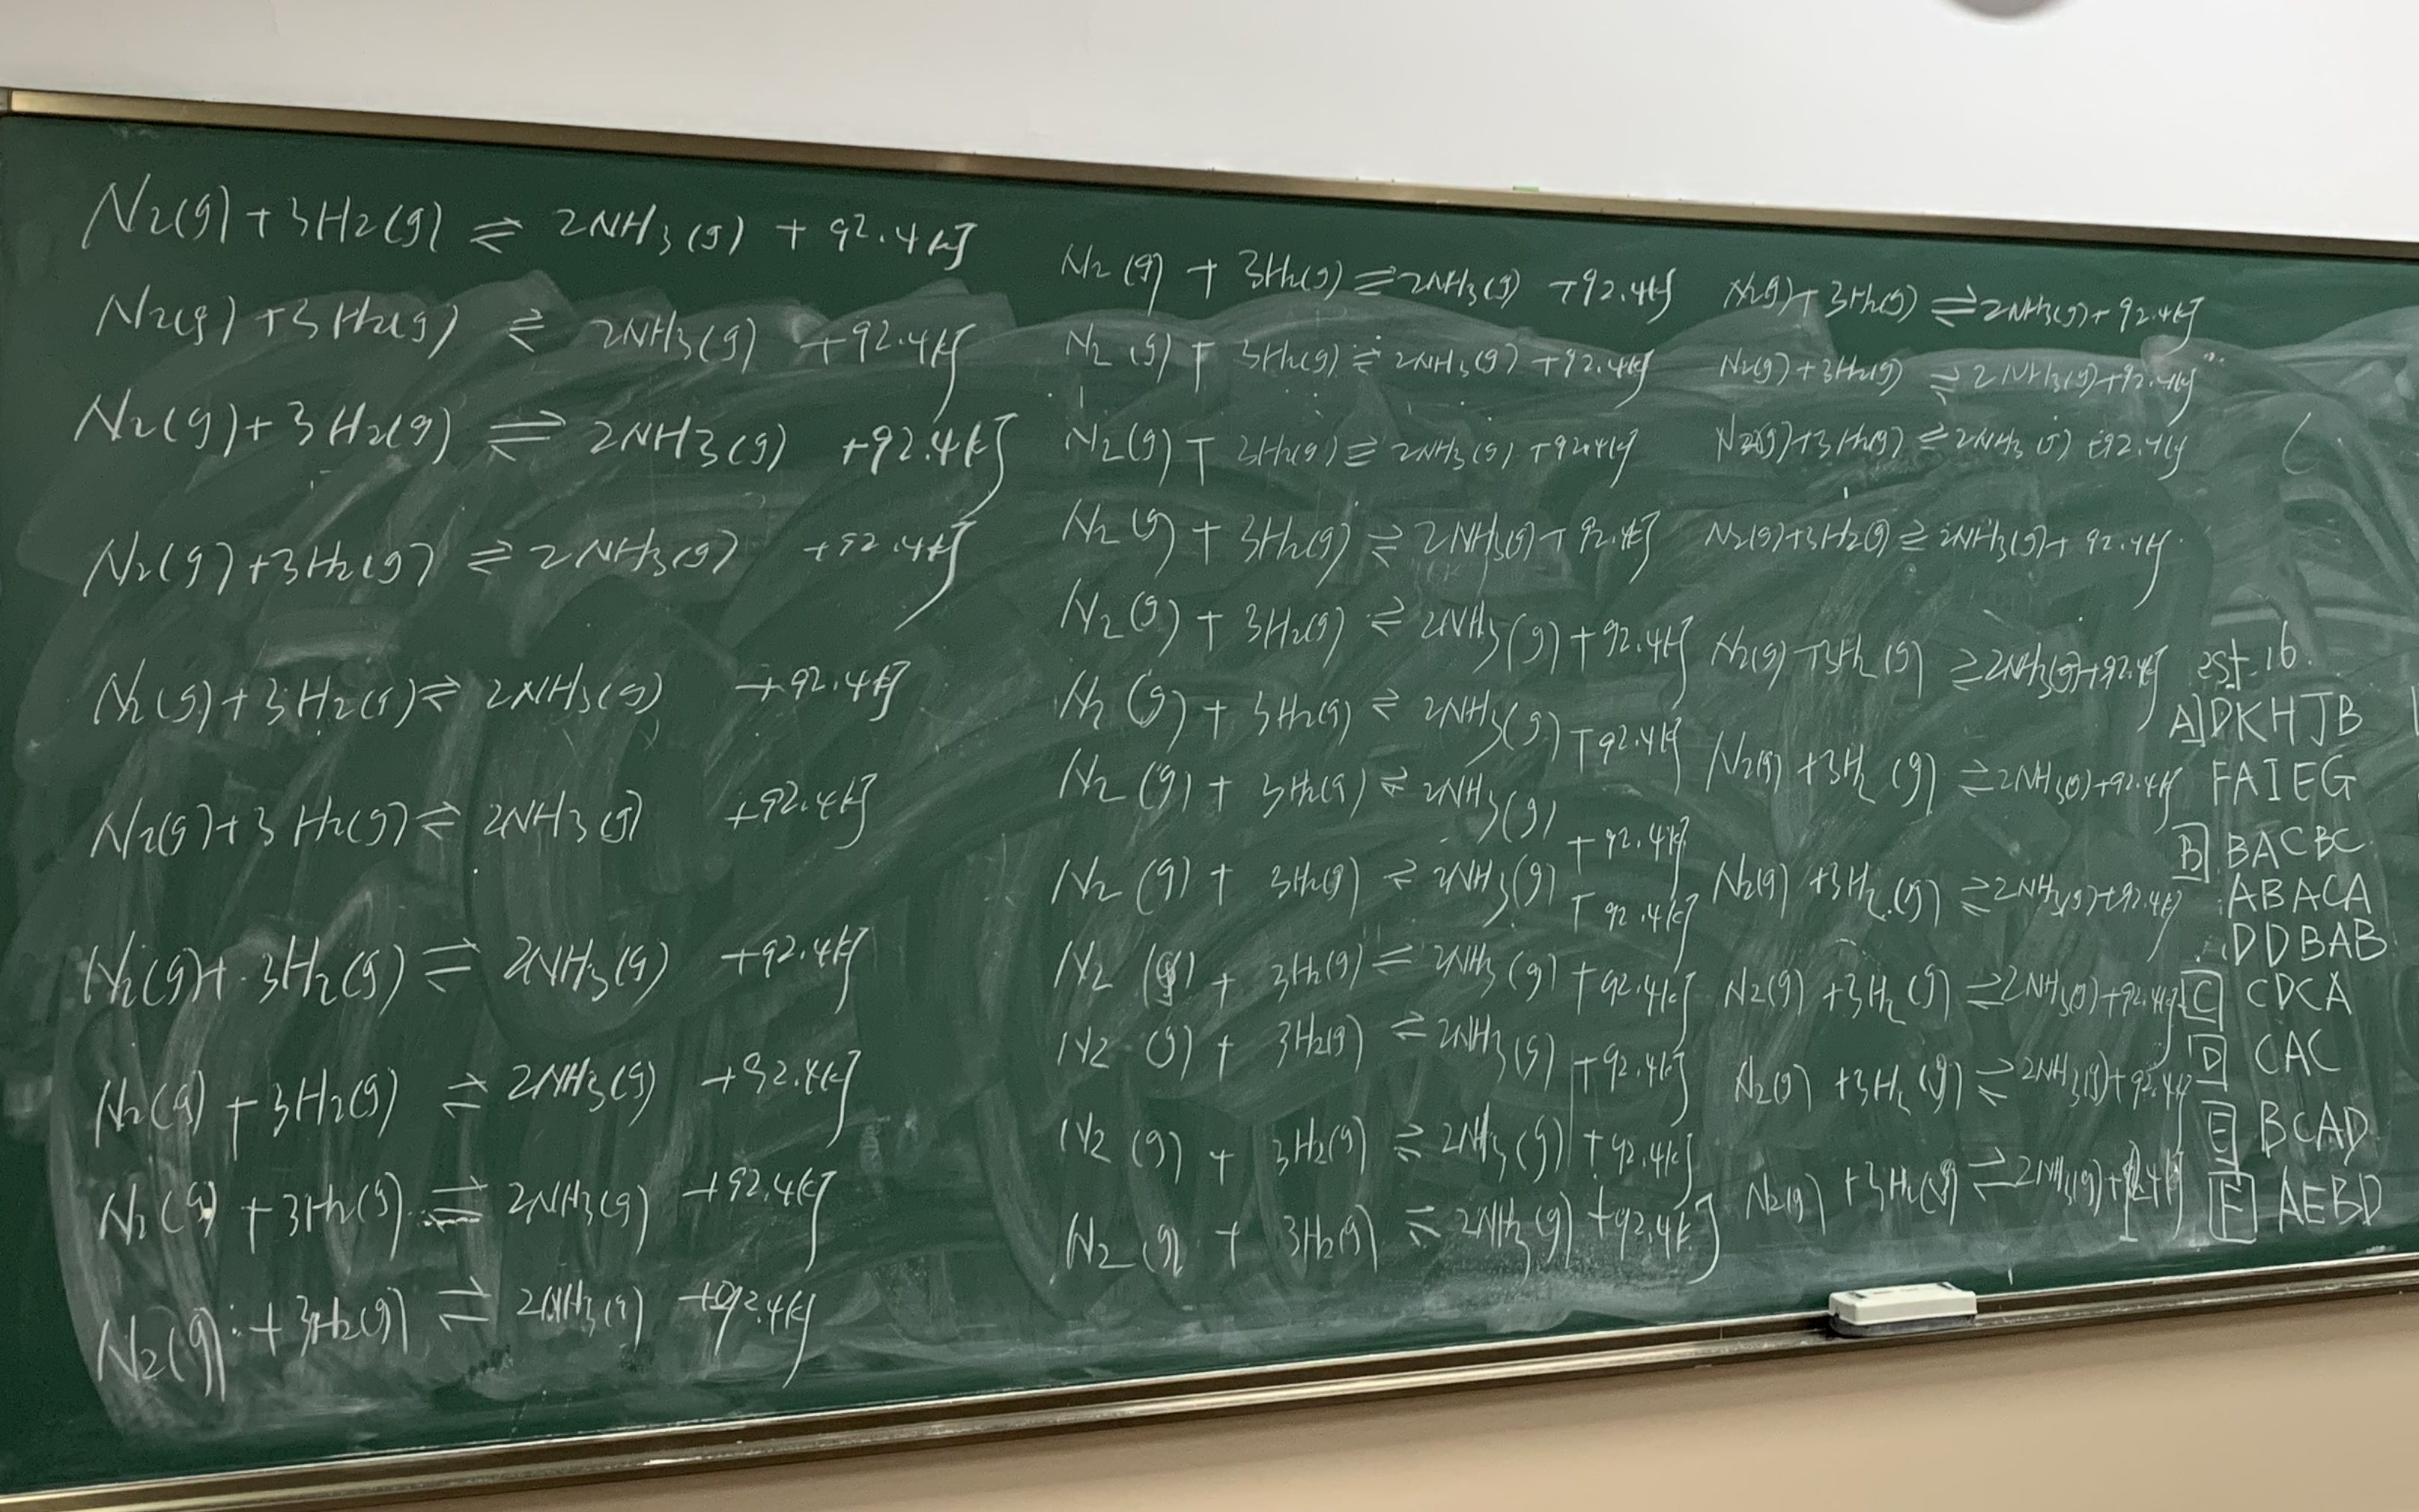 N2(g)+3H2(g) ⇌ 2NH3(g) + 92.4kJ
N2(g)+3H2(g) ⇌ 2NH3(g) +92.4kJ
N2(g)+3H2(g) ⇌ 2NH3(g) +92.4kJ
N2(g)+3H2(g) ⇌ 2NH3(g) +92.4kJ
N2(g)+3H2(g) ⇌ 2NH3(g) +92.4kJ
N2(g)+3H2(g) ⇌ 2NH3(g) +92.4kJ
N2(g)+3H2(g) ⇌ 2NH3(g) +92.4kJ
N2(g)+3H2(g) ⇌ 2NH3(g) +92.4kJ
N2(g)+3H2(g) ⇌ 2NH3(g) +92.4kJ
N2(g)+3H2(g) ⇌ 2NH3(g) +92.4kJ
N2(g) + 3H2(g) ⇌ 2NH3(g) +92.4kJ
N2(g) + 3H2(g) ⇌ 2NH3(g) +92.4kJ
N2(g) + 3H2(g) ⇌ 2NH3(g) +92.4kJ
N2(g) + 3H2(g) ⇌ 2NH3(g) + 92.4kJ
N2(g) + 3H2(g) ⇌ 2NH3(g) + 92.4kJ
N2(g) + 3H2(g) ⇌ 2NH3(g) +92.4kJ
N2(g) + 3H2(g) ⇌ 2NH3(g) + 92.4kJ
N2(g) + 3H2(g) ⇌ 2NH3(g) + 92.4kJ
N2(g) + 3H2(g) ⇌ 2NH3(g) +92.4kJ
N2(g) + 3H2(g) ⇌ 2NH3(g) +92.4kJ
N2(g) + 3H2(g) ⇌ 2NH3(g) +92.4kJ
N2(g) + 3H2(g) ⇌ 2NH3(g) +92.4kJ
N2(g)+3H2(g) ⇌ 2NH3(g)+92.4kJ
N2(g)+3H2(g) ⇌ 2NH3(g)+92.4kJ
N2(g)+3H2(g) ⇌ 2NH3(g) +92.4kJ
N2(g)+3H2(g) ⇌ 2NH3(g)+ 92.4kJ
N2(g)+3H2(g) ⇌ 2NH3(g)+92.4kJ
N2(g) +3H2(g) ⇌ 2NH3(g)+92.4kJ
N2(g) +3H2(g) ⇌ 2NH3(g)+92.4kJ
N2(g) +3H2(g) ⇌ 2NH3(g)+92.4kJ
N2(g) +3H2(g) ⇌ 2NH3(g)+92.4kJ
N2(g) +3H2(g) ⇌ 2NH3(g)+92.4kJ
est.16.
A DKHJB
FAIEG
B BACBC
ABACA
DDBAB
C CDCA
D CAC
E BCAD
F AEBD